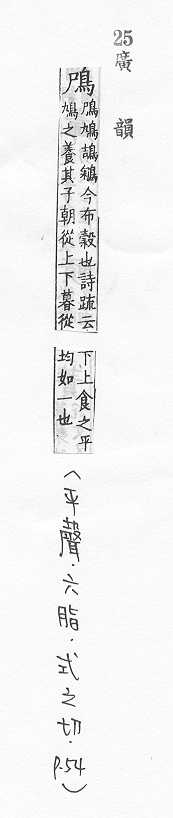 25
廣韻
鳲
鳲鳩鴶鵴今布穀也詩疏云
鳩之養其子朝從上下暮從
下上食之平
均如一也
（平聲·六脂·式之切·P.54）